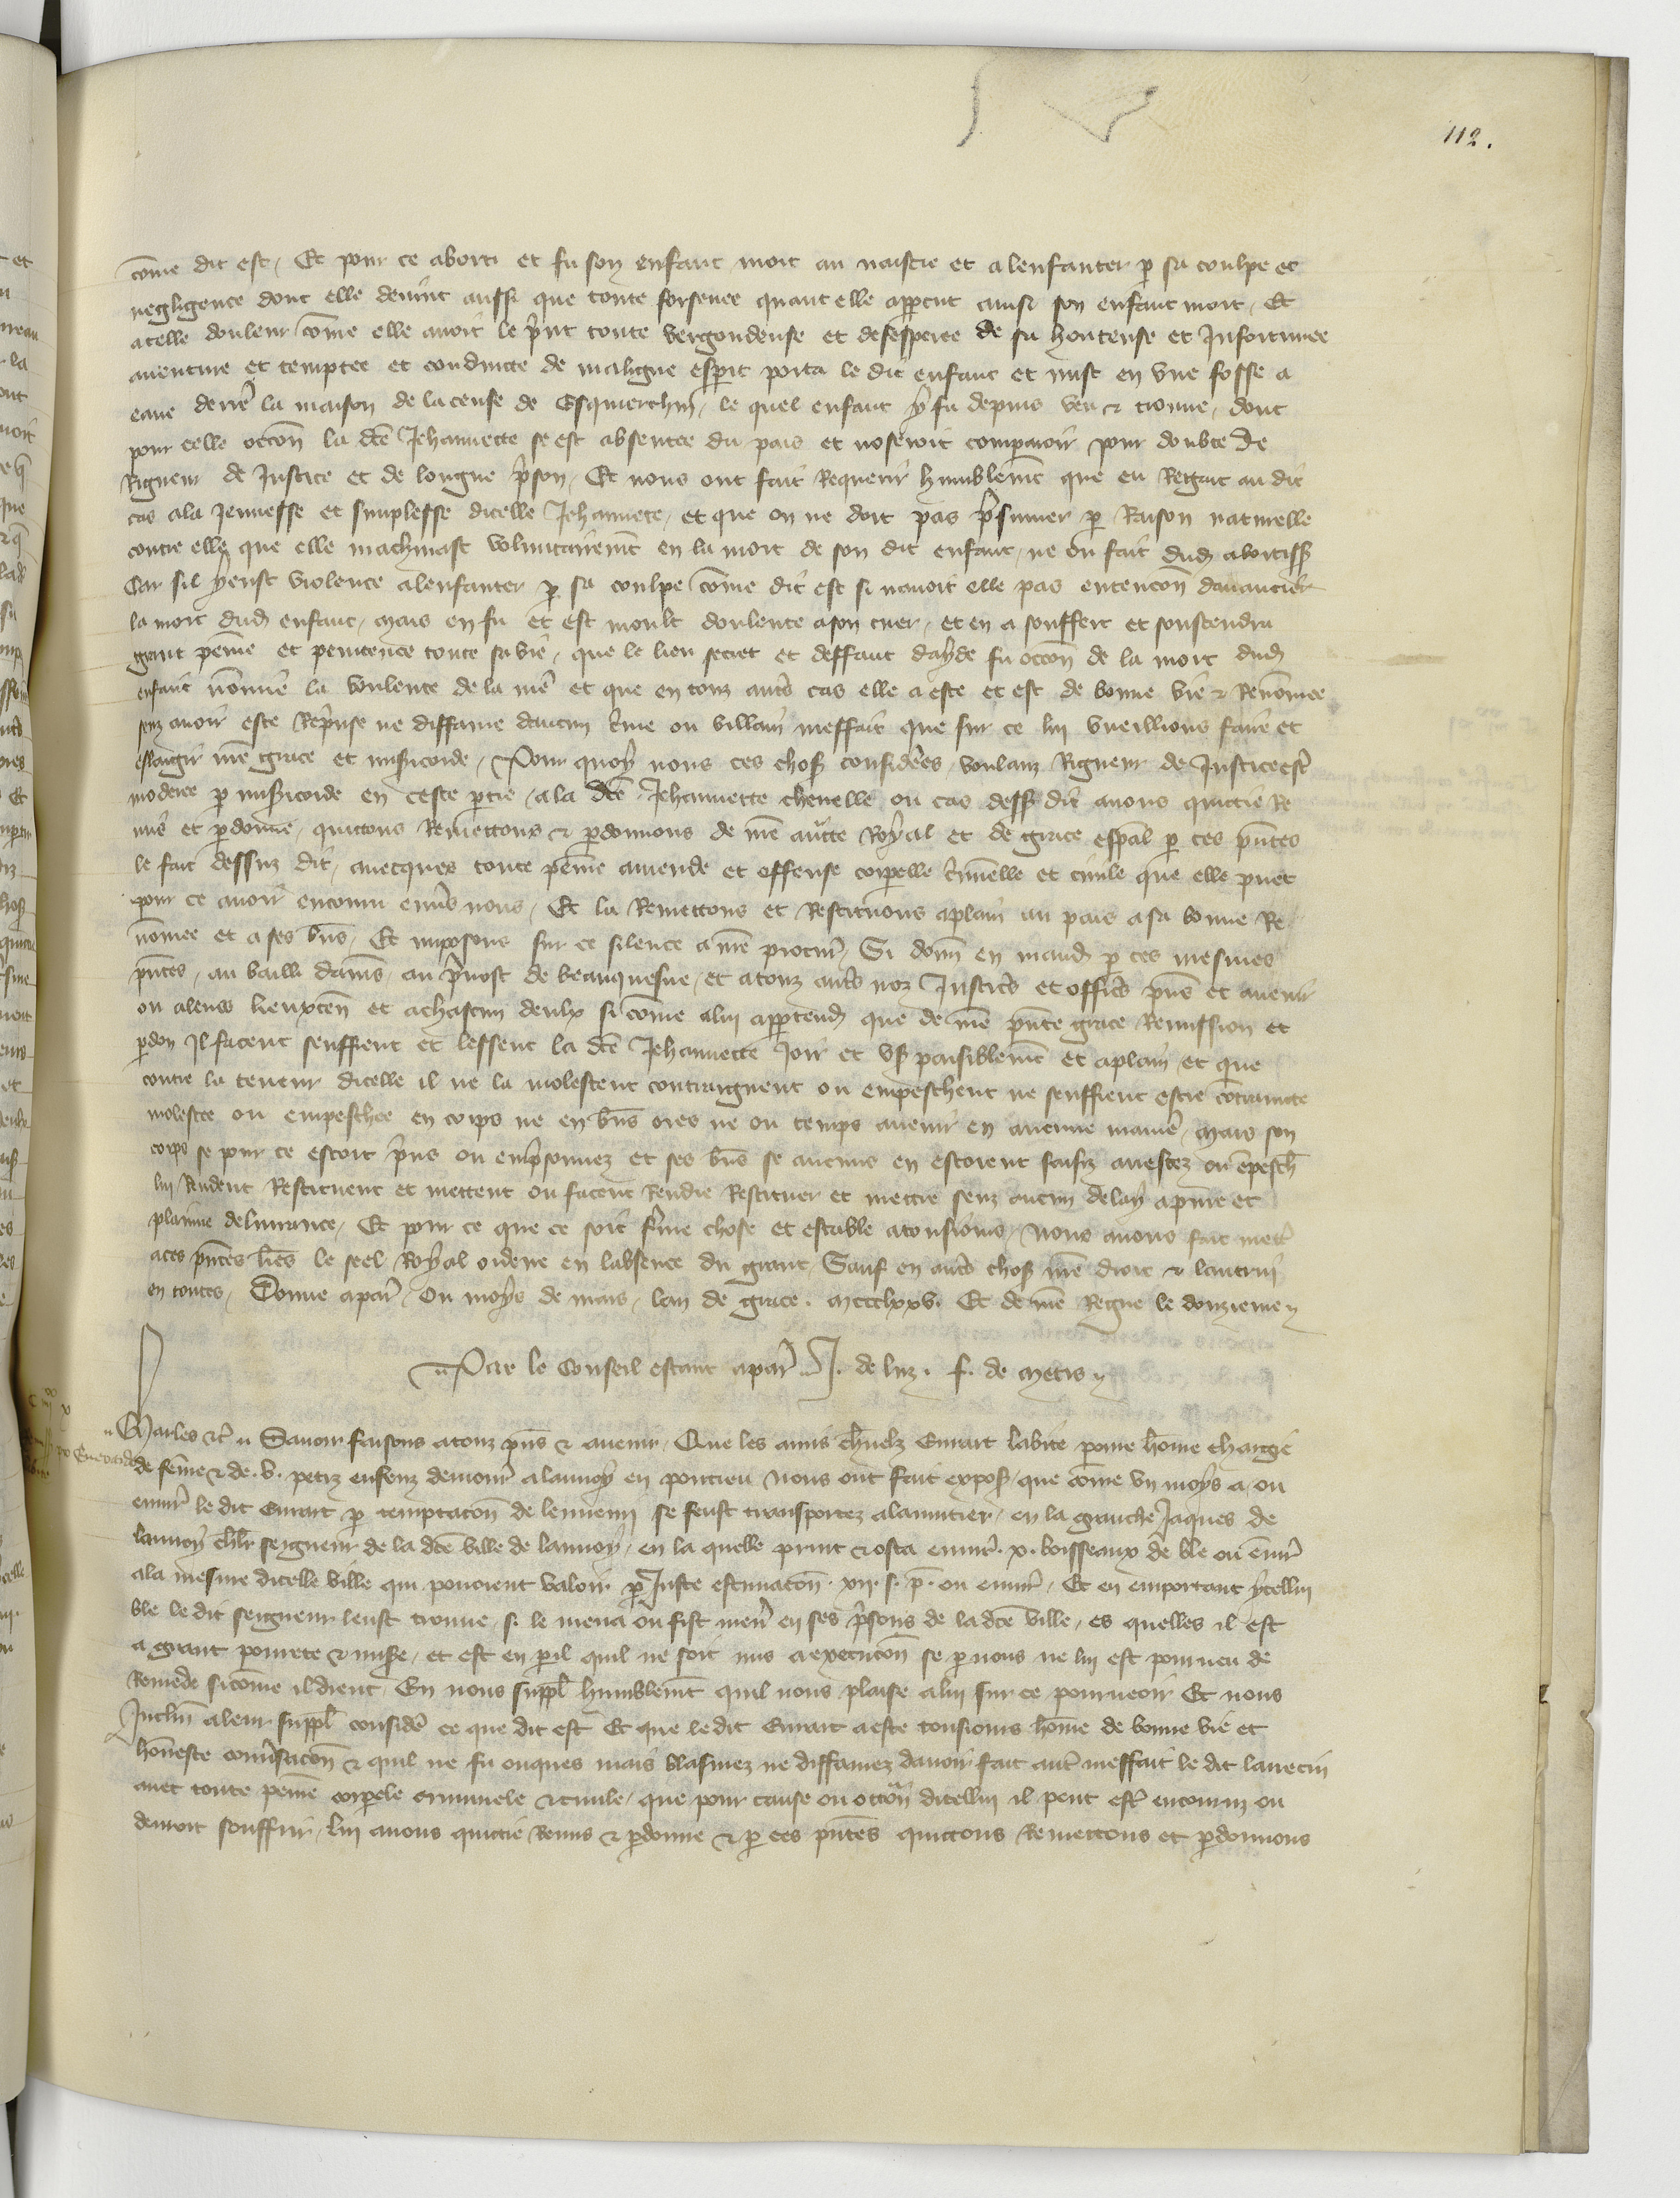 112.
cōme dit est / Et pour ce aborti et fu son enfant mort au naistre et a lenfanter p sa coulpe et
negligence dont elle devint aussi que toute forsenee quant elle apperceut ainsi son enfant mort / Et
a celle douleur cōme elle avoit le p̄nt toute vergondeuse et desesperee de sa honteuse et Infortunee
aventure et temptee et conduicte de maligne esperit porta le dit enfant et mist en une fosse a
eaue derrē la maison de la cense de Esquerchin / le quel enfant y fu depuis veu & trouve / dont
pour celle occōn la dcē Jehannette se est absentee du pais et noseroit comparoir pour doubte de
Rigueur de Justice et de longue p̄son / Et nous ont fait Requerir humblemt̄ que eu Regart au dit
cas a la Jeunesse et simplesse dicelle Jehannete / et que on ne doit pas p̄sumer p Raison naturelle
contre elle que elle machinast voluntairemt̄ en la mort de son dit enfant / ne ou fait dud abortiss
Car sil y eust violence a lenfanter p sa coulpe cōme dit est si navoit elle pas entencōn davancier
la mort dud enfant / mais en fu et est moult doulente a son cuer / et en a souffert et soustendra
grant pēine et penitence toute sa vie / que le lieu secret et deffaut dayde fu occōn de la mort dud
enfant nōmie la voulente de la mē et que en touz autˢ cas elle a este et est de bonne vie & Renōmee
senz avoir este Rep̄nse ne diffame daucun cˢme ou villain meffait que sur ce lui vueillions faire et
eslargir nrē grace et misˢicorde / Pour quoy nous ces chosˢ considerees / voulanz Rigueur de Justice estˢ
moderee p misericorde en ceste ptie / a la dcē Jehannette chevelle ou cas dessˢ dit avons quictie Re
mis et pdonne / quictons Remettons & pdonnons de nrē auctē Royal et de grace espāl p ces pn̄tes
le fait dessuz dit / avecques toute pēine amende et offense corpelle cˢmˢnelle et civile que elle puet
pour ce avoir encouru envˢs nous / Et la Remettons et Restituons a plain au pais a sa bonne Re
nōmee et a ses bnˢs / Et imposons sur ce silence a nrē procurˢ / Si donnˢ en mand p ces mesmes
pn̄tes / au bailli damiˢs / au p̄vost de beauquesne / et a touz autˢs noz Justicˢs et officˢs pn̄s et avenir
ou a leurs lieuxtenˢ et a chascun deulx si cōme a lui apptend que de nrē pn̄te grace Remission et
pdon Il facent seuffrent et lessent la dcē Jehannette Joir et usˢ paisiblemt̄ et a plain / et que
contre la teneur dicelle il ne la molestent contraignent ou empeschent ne seuffrent estre cōtrainte
molestee ou empeschee en corps ne en bnˢs ores ne ou temps avenir en aucune manierˢ / mais son
corps se pour ce estoit p̄ns ou emp̄sonnez et ses bnˢs se aucuns en estoient saisiz arrestez ou ēpeschˢ
lui Rendent Restituent et mettent ou facent Rendre Restituer et mettre senz aucun delay a pure et
plaine delivrance / Et pour ce que ce soit fˢme chose et estable a tousiours / Nous avons fait mettˢ
a ces pn̄tes lrēs le seel Royal ordene en labsence du grant / Sauf en autˢs chosˢ nrē droit & lautrui
en toutes / Donne a parˢ / Ou moys de mars / lan de grace . mccclxxv. Et de nrē Regne le douzieme
Par le Conseil estant a parˢ .. J. de luz . f. de Metis
Charles &c̄ Savoir faisons a touz pn̄s & avenir / Que les amis chˢnelz Evrart labite povre hōme charge
de fēme & de .v. petiz enfenz demourˢ a lannoy en pontieu Nous ont fait exposˢ / que cōme un moys a / ou
envirˢ le dit Evrart p temptacōn de lennemi se feust transportez a lannitier / en la granche Jaques de
lannoy chlr̄ seigneur de la dcē ville de lannoy / en la quelle print & osta envirˢ .x. boisseaux de ble ou ēvirˢ
a la mesure dicelle ville qui povoient valoir p Juste estimacōn .xij. s. p̄. ou envirˢ / Et en emportant ycellui
ble le dit seigneur leust trouve / si le mena ou fist menˢ en ses p̄sons de la dcē ville / es quelles il est
a grant povrete & misˢe / et est en pil quil ne soit mis a execucōn se p nous ne lui est pourveu de
Remede si cōme il dient / En nous supplˢ humblemt̄ quil nous plaise a lui sur ce pourveoir Et nous
Inclinˢ a leur supplˢ considerˢ ce que dit est Et que le dit Evrart a este tousiours hōme de bonne vie et
hōneste convˢsacōn & quil ne fu onques mais blasmez ne diffamez davoir fait autˢ meffait le dit larrecin
avec toute pēine corpele criminele & civile / que pour cause ou occōn dicellui il peut estˢ encouru ou
devroit souffrir / lui avons quictie Remis & pdonne & p ces pn̄tes quictons Remettons et pdonnons